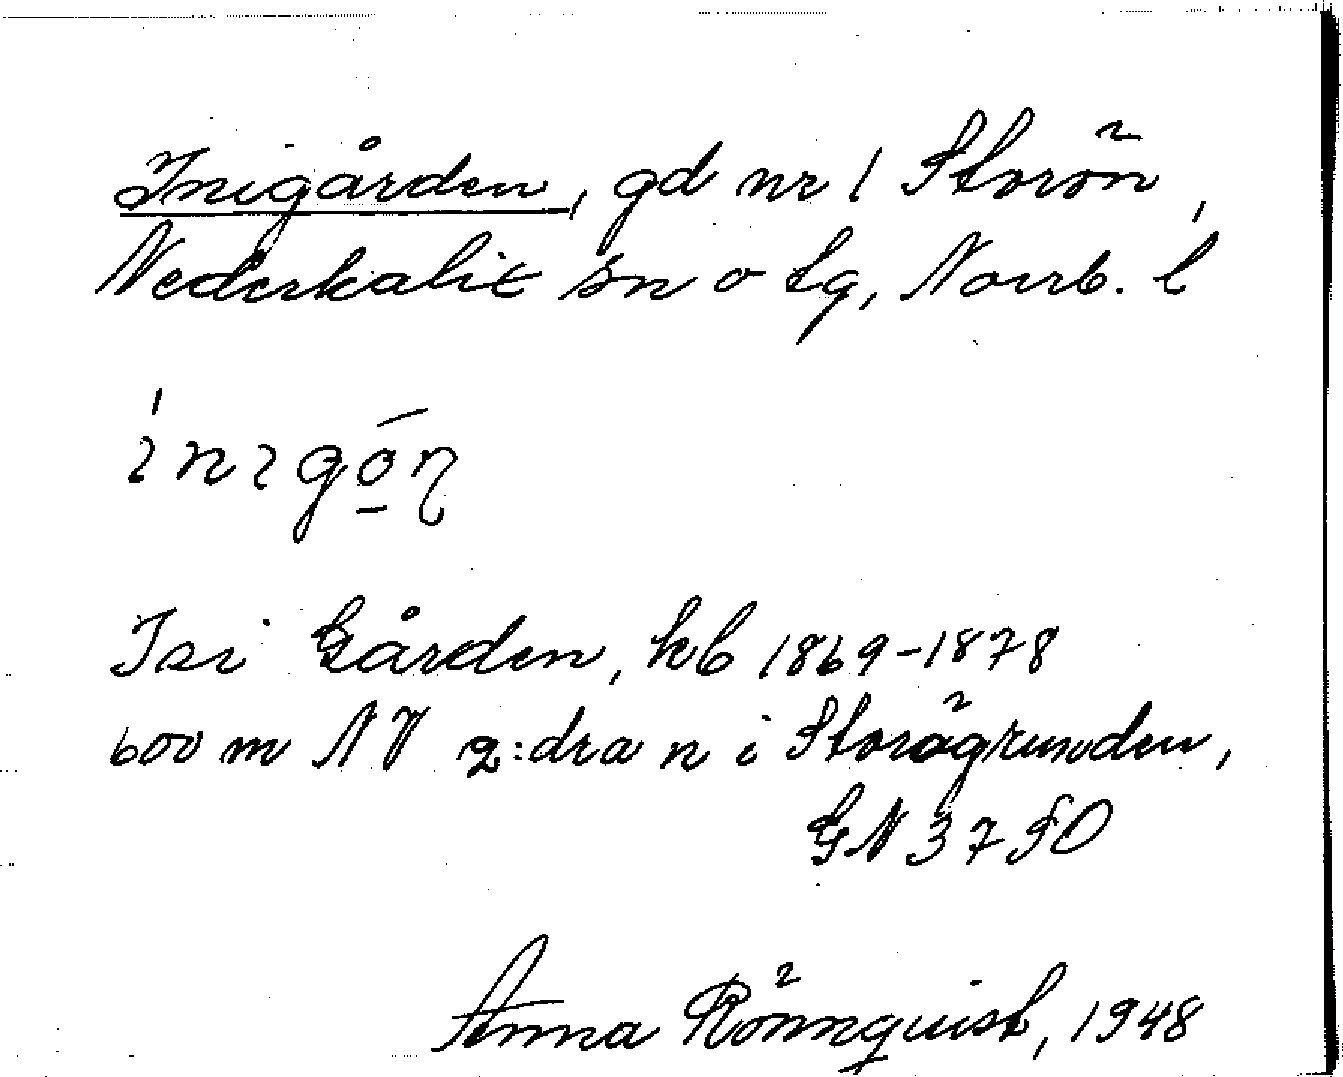 Inigården, gd nr 1 Storön,
Nederkalix sn o tg, Norrb. l
Gården, kb 1869-1878
600 m NV 2:dra n i Storögrunden,
GN 37 SO
Anna Rönnquist, 1948